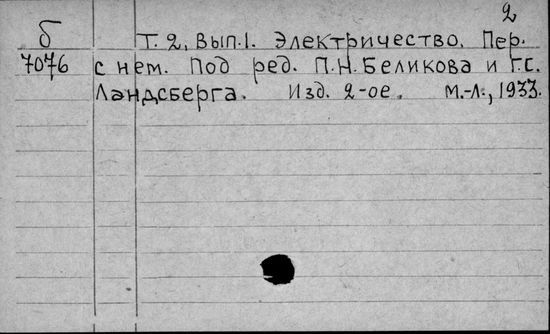 2
б Т. 2, Вып. 1. Электричество. Пер.
7076 с нем. Под ред. П.Н. Беликова и Г.С.
Ландсберга. Изд. 2-ое. М.-Л., 1933.